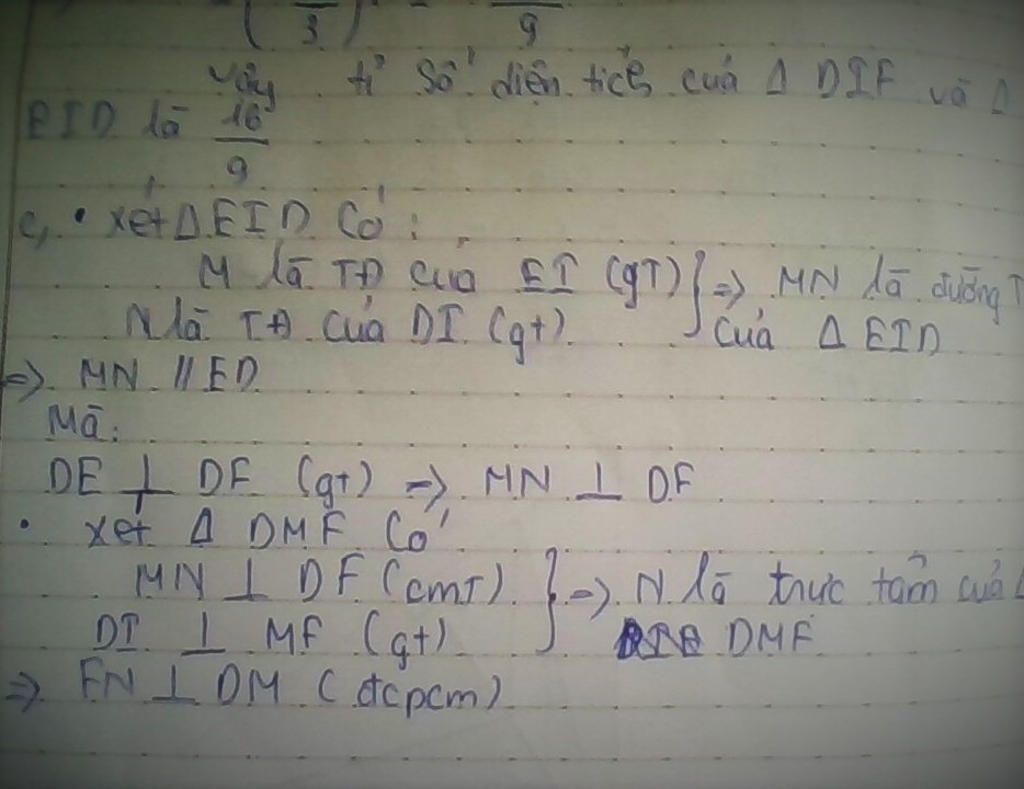 ( 3 ) 9
vậy tỉ số diện tích của Δ DIF và Δ
EID là 16/9
c, • xét Δ EID có :
M là TĐ của EI (gT) } => MN là đường T
N là TĐ của DI (gt) của Δ EID
=> MN // ED
Mà :
DE ⊥ DF (gt) => MN ⊥ DF
• xét Δ DMF có
MN ⊥ DF (cmT) } => N là trực tâm của Δ
DI ⊥ MF (gt) DMF
=> FN ⊥ DM ( đcpcm)